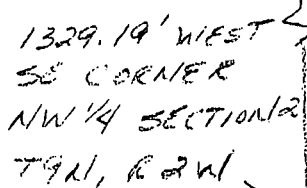 1329.19' WEST
SE CORNER
NW 1/4 SECTION 12
T9N, R2W